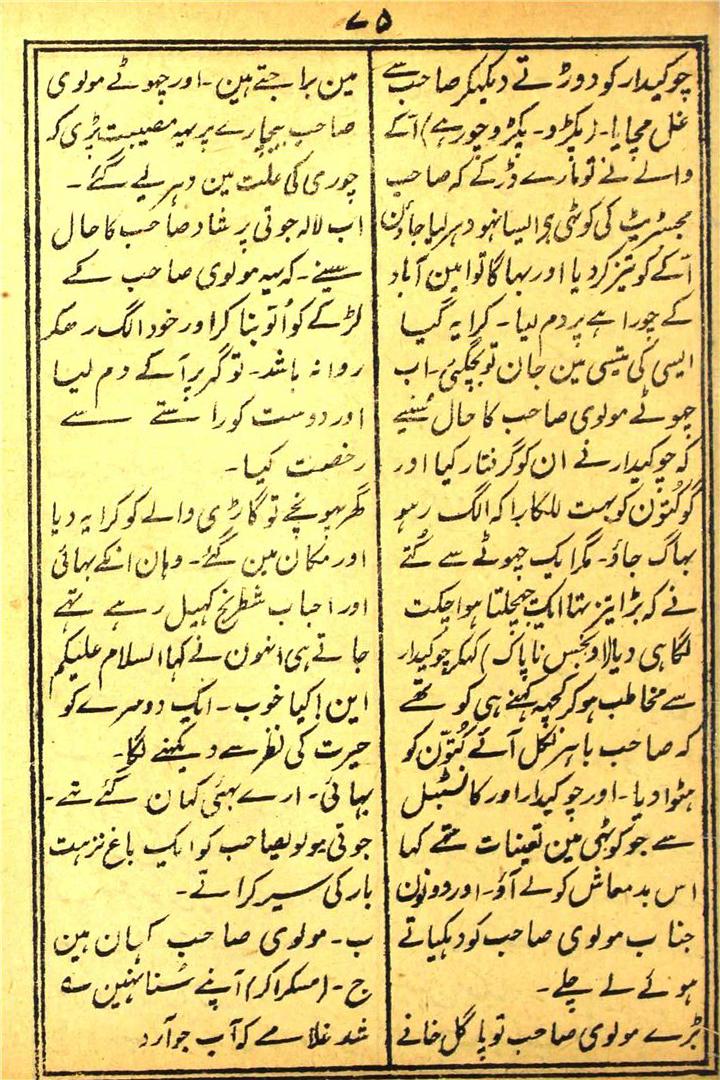 ۷۵
چوکیدار کو دوڑتے دیکھکر صاحب سے
غل مچایا۔ (پکڑو۔ پکڑو چور ہے) آکے
والے نے تو مارے ڈر کے کہ صاحب
مجسٹریٹ کی کوٹھی ہی ایسا نہو دہر لیا جاؤن
آکے کو تیز کر دیا اور بہاگا تو امین آباد
کے چوراہے پر دم لیا۔ کرایہ گیا
ایسی کی تیسی مین جان تو بچگئی۔ اب
چھوٹے مولوی صاحب کا حال سُنیے
کہ چوکیدار نے ان کو گرفتار کیا اور
گو کُتون کو بہت للکارا کہ الگ رہو
بہاگ جاؤ۔ مگر ایک چھوٹے سے کُتے
نے کہ بڑا تیز تہا ایک اچکت
لگا ہی دیا لاو نجس ناپاک) کہکر چوکیدار
سے مخاطب ہوکر کچھہ کہنے ہی کو تھے
کہ صاحب باہر نکل آئے کُتون کو
ہٹوا دیا۔ اور چوکیدار اور کانسٹبل
سے جو کوٹھی مین تعینات تھے کہا
اس بدمعاش کو لے آؤ۔ اور دونون
جناب مولوی صاحب کو دہکیاتے
ہوئے لے چلے۔
بڑے مولوی صاحب تو پاگل خانے
مین براجتے ہین۔ اور چھوٹے مولوی
صاحب بیچارے پر یہہ مصیبت پڑی کہ
چوری کی علت مین دہر لیے گئے۔
اب لالہ جوتی پرشاد صاحب کا حال
سنیے۔ کہ یہہ مولوی صاحب کے
لڑکے کو اُتّو بنا کر اور خود الگ رھکر
روانہ باشد۔ تو گھر پر آکے دم لیا
اور دوست کو راستے سے
رخصت کیا۔
گھر پہونچے تو گاڑی والے کو کرایہ دیا
اور مکان مین گئے۔ وہان انکے بہائی
اور احباب شطرنج کھیل رہے تھے
جاتے ہی انہون نے کہا السلام علیکم
این! کیا خوب۔ ایک دوسرے کو
حیرت کی نظر سے دیکھنے لگا۔
بہائی۔ ارے بھئی کہان گئے تھے۔
جوتی۔ مولویصاحب کو ایک باغ نزہت
بار کی سیر کراتے۔
ب۔ مولوی صاحب کہان ہین
ج۔ (مسکراکر) آپنے سُنا نہین ے
شد غلامے کہ آب جو آرد